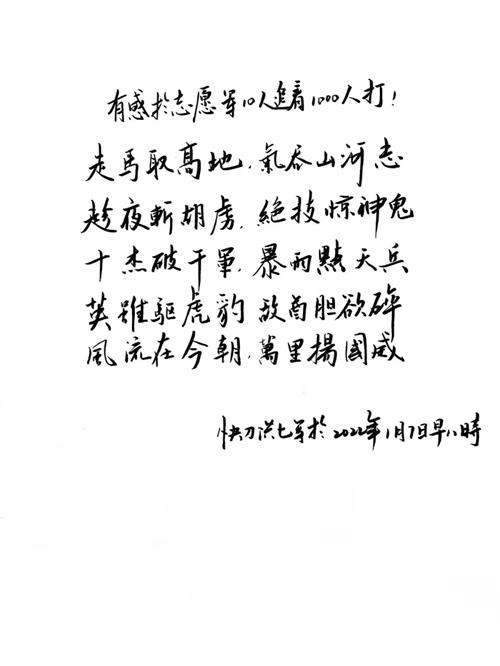 有感於志愿軍10人追着1000人打！
走馬取高地，氣吞山河志
趁夜斬胡虜，絕技惊神鬼
十杰破千軍，暴雨點天兵
英雄驅虎豹 敌酋胆欲碎
風流在今朝，萬里揚國威
快刀洪七写於2022年1月7日早八時